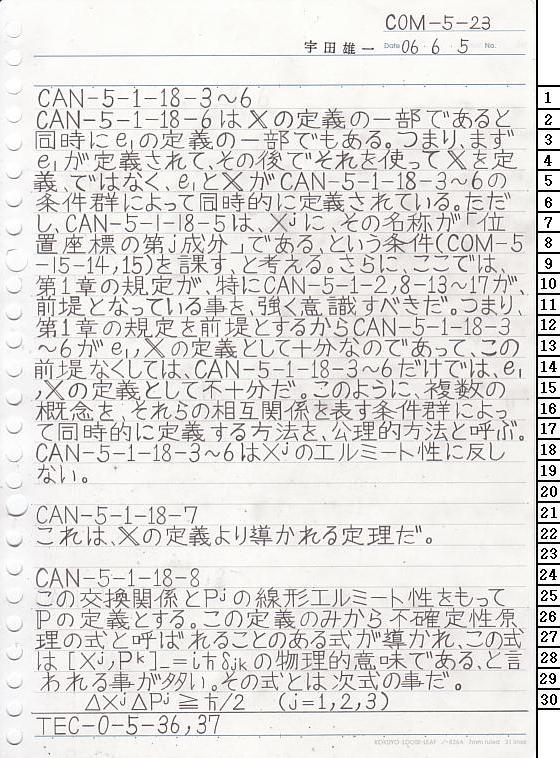 COM-5-23
宇田雄一 Date 06 6 5 No.
CAN-5-1-18-3～6
CAN-5-1-18-6は𝕏の定義の一部であると
同時にe₁の定義の一部でもある。つまり、まず
e₁が定義されて、その後でそれを使って𝕏を定
義、ではなく、e₁と𝕏がCAN-5-1-18-3～6の
条件群によって同時的に定義されている。ただ
し、CAN-5-1-18-5は、Xʲに、その名称が「位
置座標の第j成分」である、という条件(COM-5
-15-14,15)を課す、と考える。さらに、ここでは、
第1章の規定が、特にCAN-5-1-2,8-13～17が、
前堤となっている事を、強く意識すべきだ。つまり、
第1章の規定を前堤とするからCAN-5-1-18-3
～6がe₁,𝕏の定義として十分なのであって、この
前堤なくしては、CAN-5-1-18-3～6だけでは、e₁
,𝕏の定義として不十分だ。このように、複数の
概念を、それらの相互関係を表す条件群によっ
て同時的に定義する方法を、公理的方法と呼ぶ。
CAN-5-1-18-3～6はXʲのエルミート性に反し
ない。
CAN-5-1-18-7
これは、𝕏の定義より導かれる定理だ。
CAN-5-1-18-8
この交換関係とPʲの線形エルミート性をもって
ℙの定義とする。この定義のみから不確定性原
理の式と呼ばれることのある式が導かれ、この式
は[Xʲ,Pᵏ]₋=iħδⱼₖの物理的意味である、と言
われる事が多い。その式とは次式の事だ。
ΔXʲΔPʲ≧ħ/2 (j=1,2,3)
TEC-0-5-36,37
KOKUYO LOOSE-LEAF ノ-836A 7mm ruled 31 lines
1
2
3
4
5
6
7
8
9
10
11
12
13
14
15
16
17
18
19
20
21
22
23
24
25
26
27
28
29
30